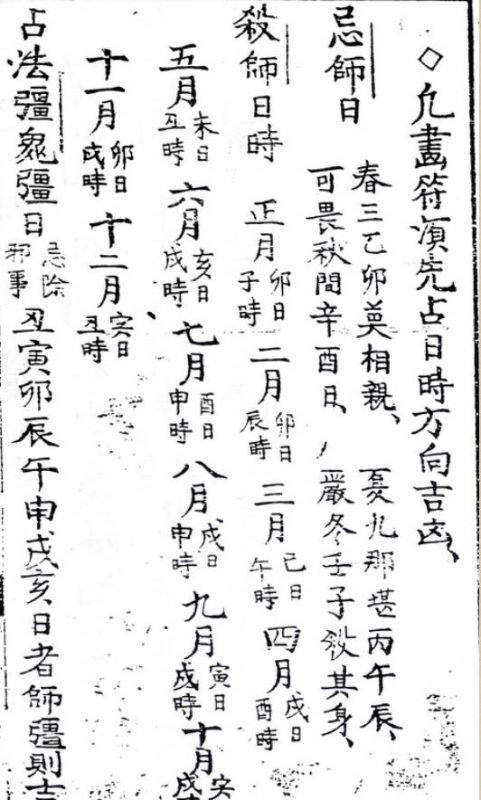 ◇凢畫符須先占日時方向吉凶、
忌師日 春三乙卯莫相親、 夏九那堪丙午辰、
可畏秋間辛酉日、 嚴冬壬子殺其身、
殺師日時 正月卯日子時 二月卯日辰時 三月己日午時 四月戌日酉時
五月未日丑時 六月亥日戌時 七月酉日申時 八月戌日申時 九月寅日戌時 十月亥日戌
十一月卯日戌時 十二月亥日丑時
占法彊鬼彊日忌除邪事丑寅卯辰午申戌亥日者師彊則吉